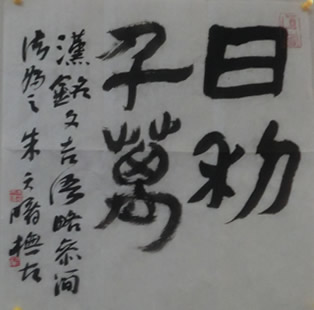 日利
千萬
漢銘文吉語略參簡
法為之朱天曙撫古